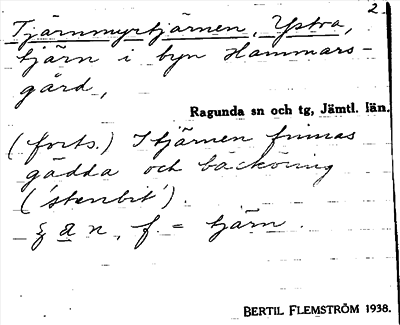 2
Tjärnmyrtjärnen, Ystra,
tjärn i byn Hammars-
gård,
Ragunda sn och tg, Jämtl. län.
(forts.) I tjärnen finnas
gädda och bäcköring
('stenbit').
f. = tjärn.
BERTIL FLEMSTRÖM 1938.